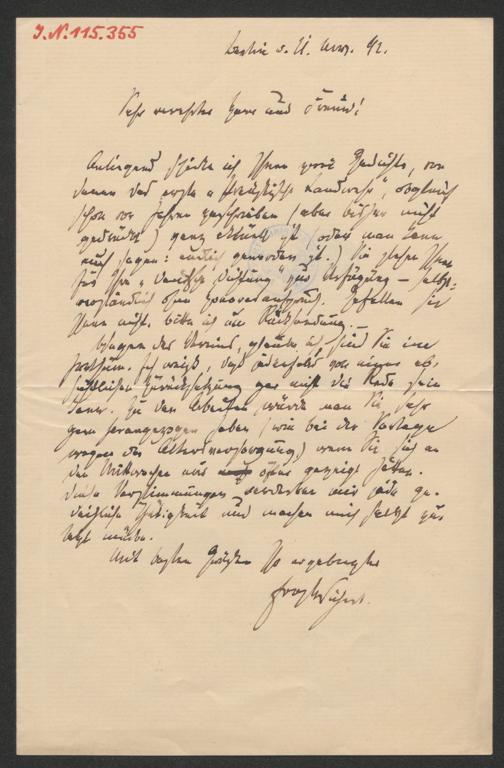 I.N. 115.355
Berlin d. 21. Nov. 92.
Sehr verehrter Herr und Freund!
Anliegend schicke ich Ihnen zwei Gedichte, von
denen das erste „Preußische Landwehr", obgleich
schon vor Jahren geschrieben (aber bisher nicht
gedruckt) ganz aktuell ist (oder man kann
auch sagen: wieder geworden ist.) Sie stehen Ihnen
für Ihre „Deutsche Dichtung" zur Verfügung – selbst-
verständlich ohne Honoraranspruch. Gefallen sie
Ihnen nicht, bitte ich um Rücksendung. –
Wegen des Vereins, glaube ich, sind Sie im
Irrthum. Ich weiß, daß jedenfalls von einer ab-
sichtlichen Zurücksetzung gar nicht die Rede sein
kann. Zu den Arbeiten würde man Sie sehr
gern herangezogen haben (wie bei der Vorlage
wegen der Altersversorgung,) wenn Sie sich an
den Mittwochen nur öfter gezeigt hätten.
Diese Verstimmungen verderben mir jede ge-
deihliche Thätigkeit und machen mich selbst zu-
letzt müde.
Mit besten Grüßen Ihr ergebenster